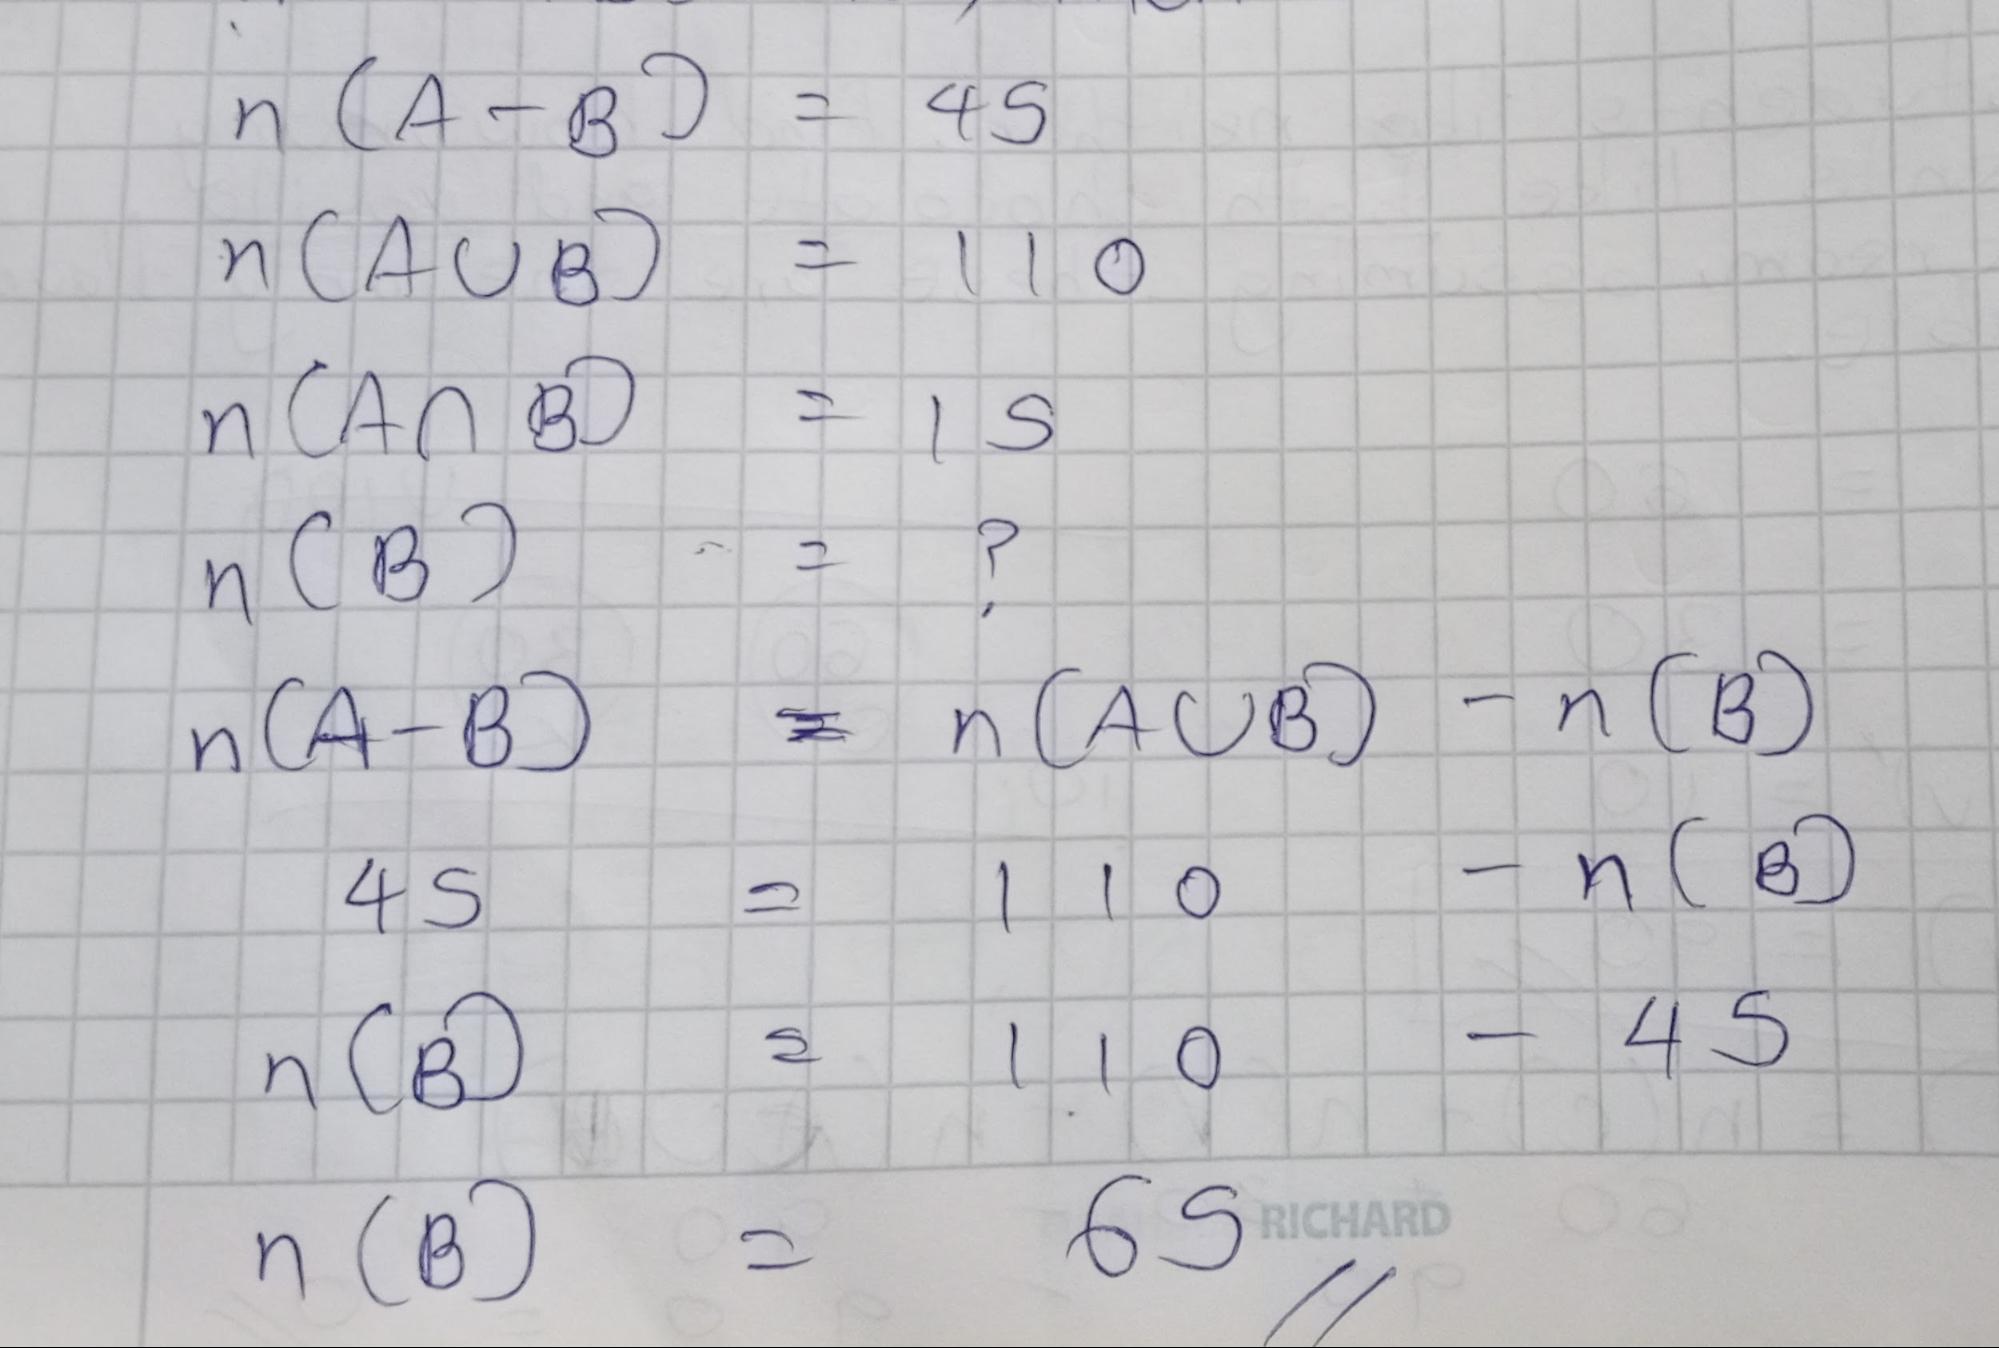 n(A-B) = 45
n(A∪B) = 110
n(A∩B) = 15
n(B) = ?
n(A-B) = n(A∪B) - n(B)
45 = 110 - n(B)
n(B) = 110 - 45
n(B) = 65 //
RICHARD